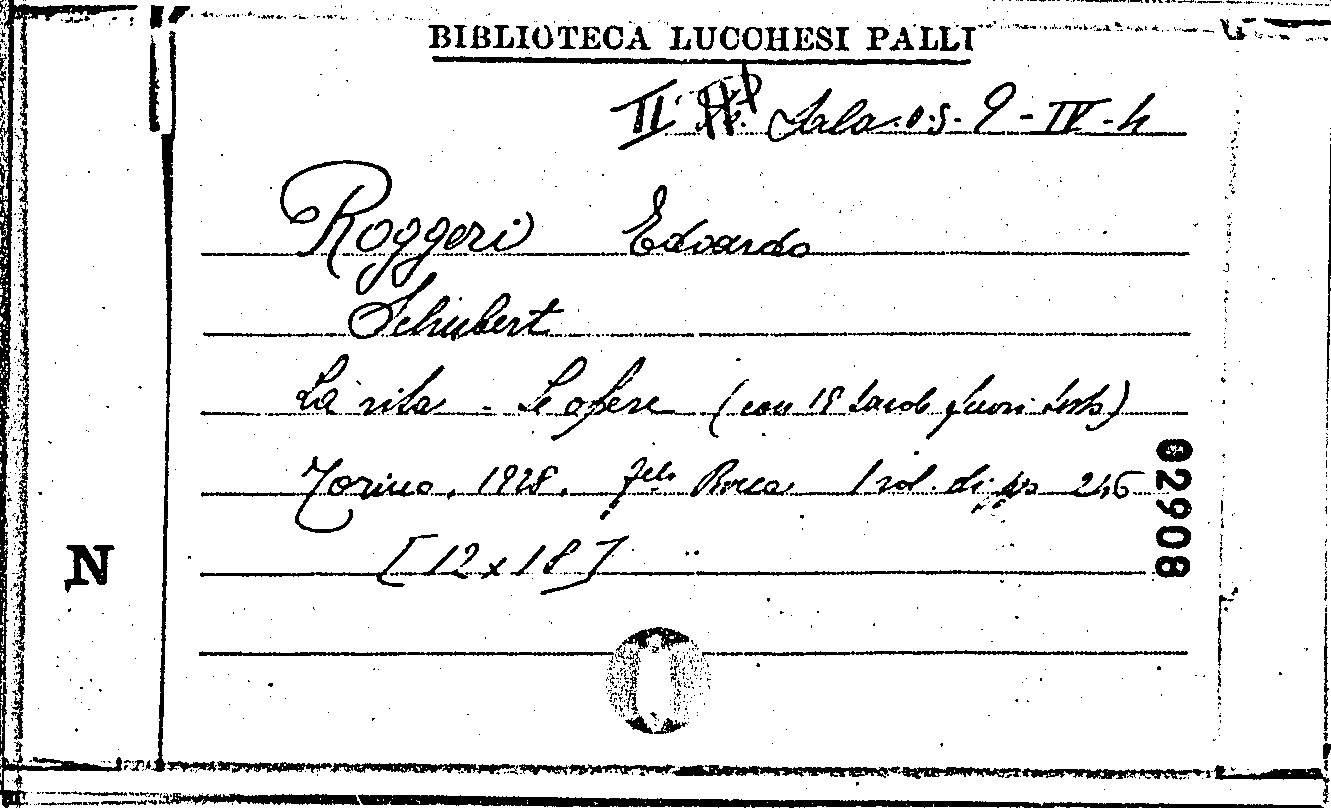 BIBLIOTECA LUCCHESI PALLI
II Sala o.s. 9-IV-4
Roggeri Edoardo
Schubert
La vita - Le opere (con 18 tavole fuori testo)
Torino, 1928. f.lli Bocca 1 vol. di pp 246
[12x18]
N
02908